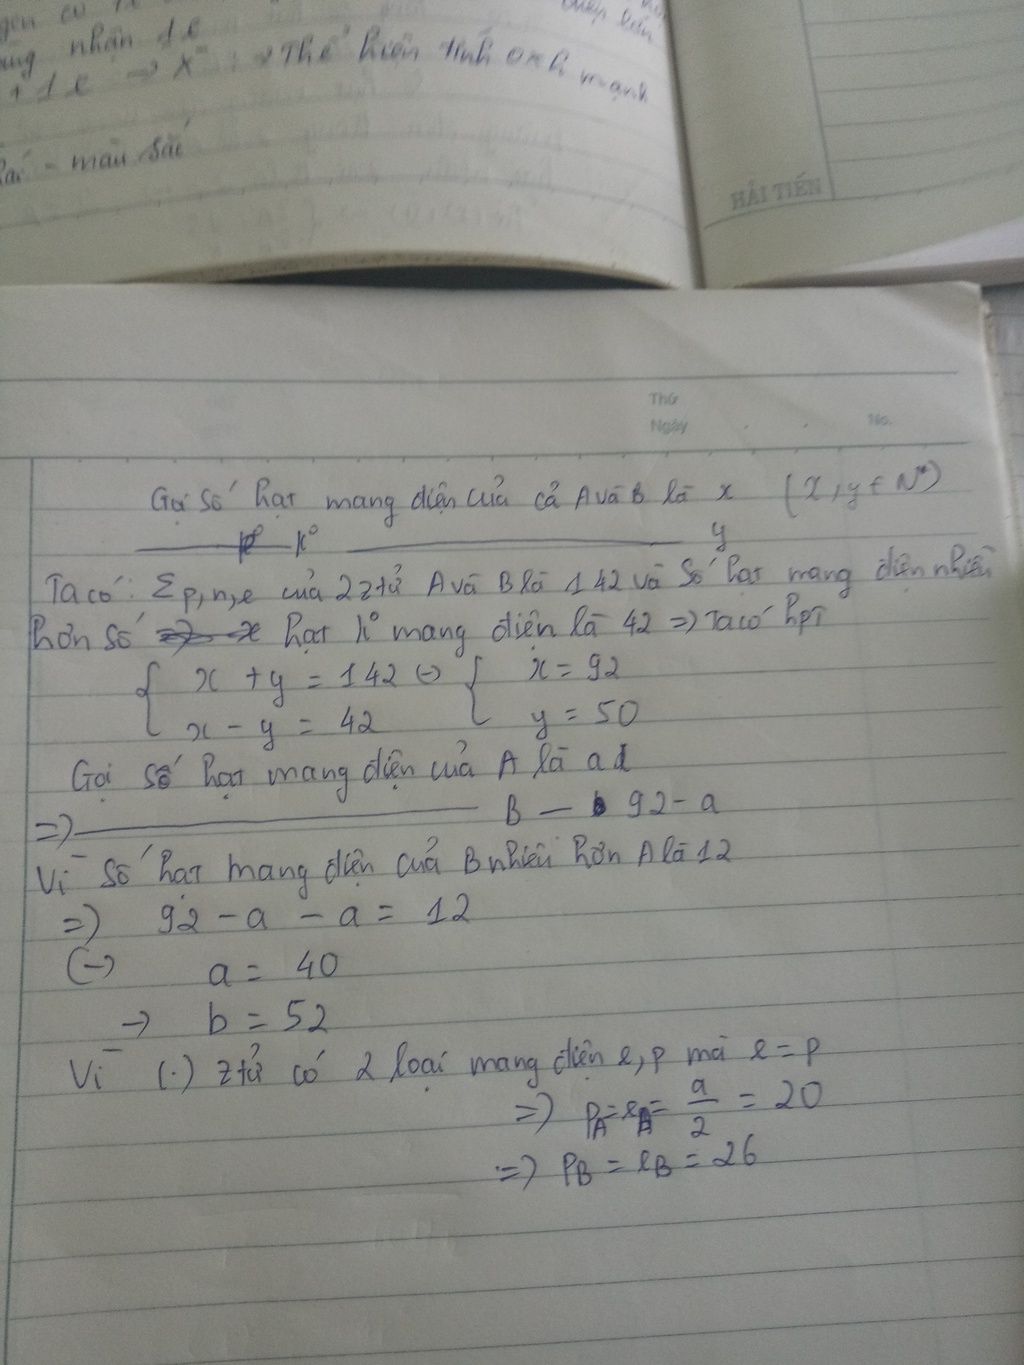 nhận 1e
1e → X⁻ : → Thể hiện tính oxh mạnh
- màu sắc
HẢI TIẾN
Thứ
Ngày No.
Gọi số hạt mang điện của cả A và B là x (x, y ∈ N*)
k° y
Ta có: Σp,n,e của 2 ztử A và B là 142 và số hạt mang điện nhiều
hơn số hạt k° mang điện là 42 => Ta có hpt
{ x + y = 142 (-) { x = 92
x - y = 42 y = 50
Gọi số hạt mang điện của A là a
=> B — 92 - a
Vì số hạt mang điện của B nhiều hơn A là 12
=> 92 - a - a = 12
(-) a = 40
-> b = 52
Vì (.) ztử có 2 loại mang điện e, p mà e = p
=> pA = eA = a/2 = 20
=> pB = eB = 26